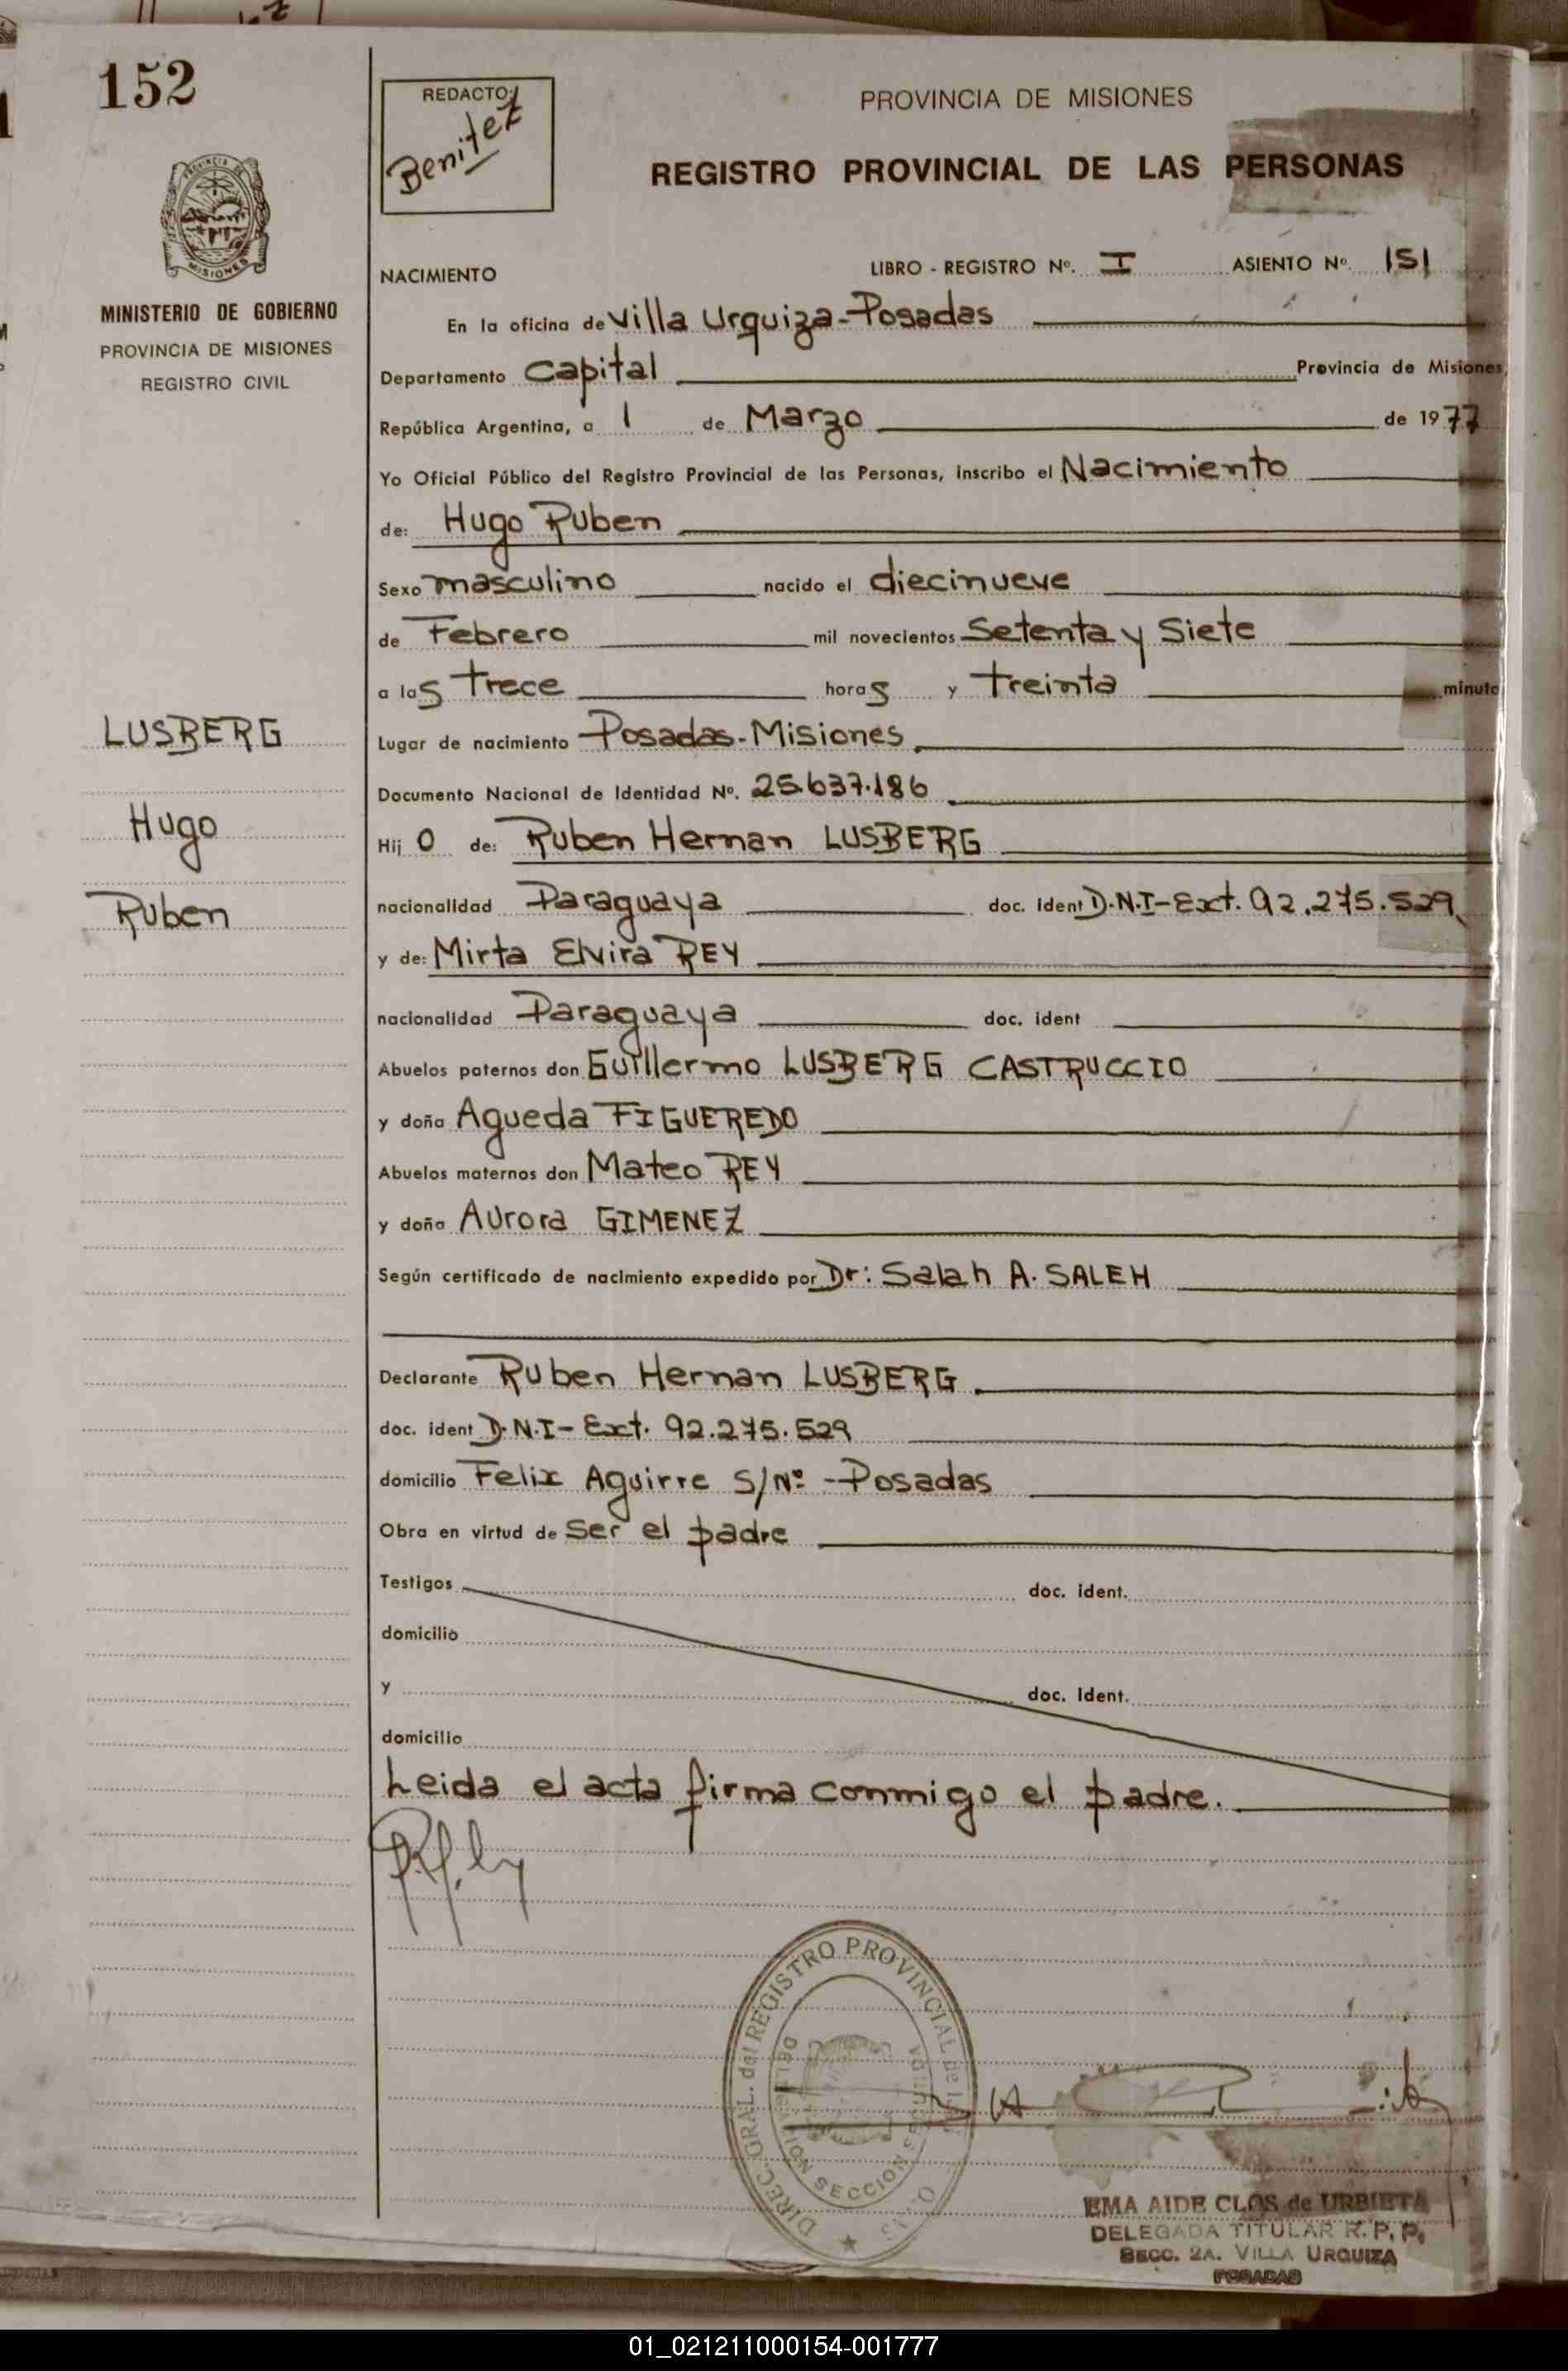 152
REDACTO:
Benitez
PROVINCIA DE MISIONES
REGISTRO PROVINCIAL DE LAS PERSONAS
PROVINCIA DE
MISIONES
MINISTERIO DE GOBIERNO
PROVINCIA DE MISIONES
REGISTRO CIVIL
NACIMIENTO LIBRO - REGISTRO Nº. I ASIENTO Nº. 151
En la oficina de Villa Urquiza-Posadas
Departamento Capital Provincia de Misiones,
República Argentina, a 1 de Marzo de 1977
Yo Oficial Público del Registro Provincial de las Personas, inscribo el Nacimiento
de: Hugo Ruben
Sexo masculino nacido el diecinueve
de Febrero mil novecientos Setenta y Siete
a las trece horas y treinta minuto
LUSBERG
Hugo
Ruben
Lugar de nacimiento Posadas-Misiones
Documento Nacional de Identidad Nº. 25.637.186
Hij o de: Ruben Hernan LUSBERG
nacionalidad Paraguaya doc. ident D.N.I-Ext. 92.275.529
y de: Mirta Elvira REY
nacionalidad Paraguaya doc. ident
Abuelos paternos don Guillermo LUSBERG CASTRUCCIO
y doña Agueda FIGUEREDO
Abuelos maternos don Mateo REY
y doña Aurora GIMENEZ
Según certificado de nacimiento expedido por Dr: Salah A. SALEH
Declarante Ruben Hernan LUSBERG
doc. ident D.N.I-Ext. 92.275.529
domicilio Felix Aguirre S/Nº -Posadas
Obra en virtud de ser el padre
Testigos doc. ident.
domicilio
y doc. ident.
domicilio
Leida el acta firma conmigo el padre.
DIREC. GRAL. del REGISTRO PROVINCIAL de las
SECCION
EMA AIDE CLOS de URBIETA
DELEGADA TITULAR R. P. P.
SECC. 2A. VILLA URQUIZA
POSADAS
01_021211000154-001777